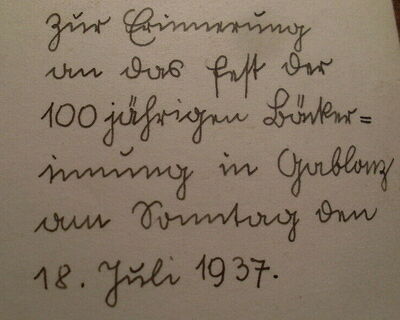 Zur Erinnerung
an das Fest der
100jährigen Bäcker=
innung in Gablonz
am Sonntag den
18. Juli 1937.